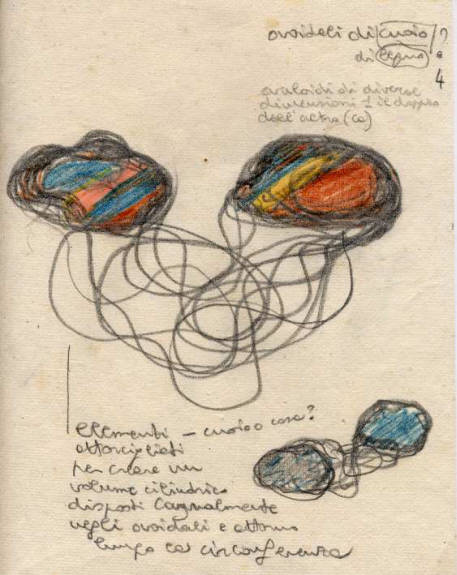 ovoidali di cuoio /?
di legno
4
ovaloidi di diverse
dimensioni 1 il doppio
dell'altra (ca)
elementi – cuoio o cosa?
attorcigliati
per creare un
volume cilindrico
disposti casualmente
negli ovoidali e attorno
lungo la circonferenza